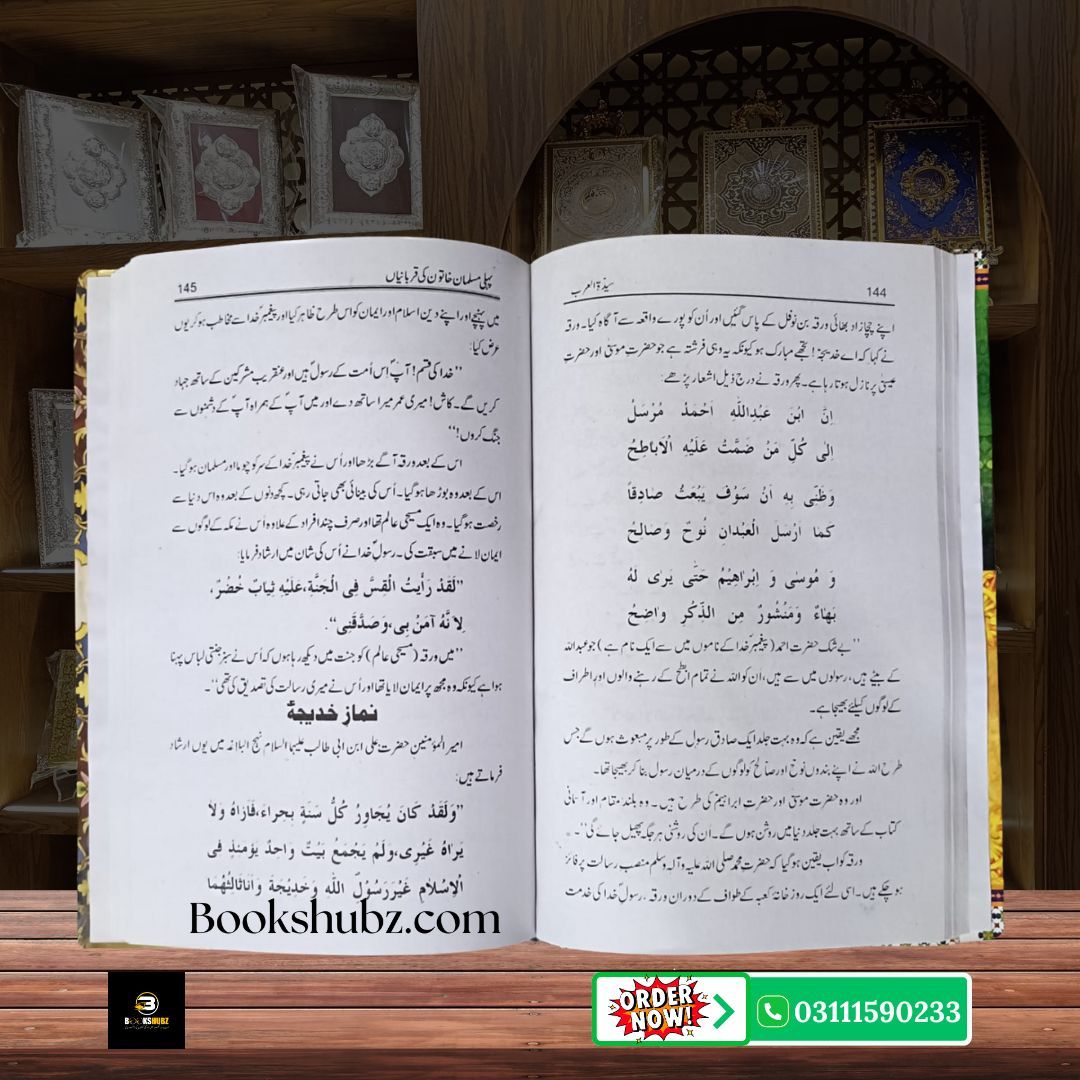 سیدۃ العرب
144
اپنے چچازاد بھائی ورقہ بن نوفل کے پاس گئیں اور اُن کو پورے واقعہ سے آگاہ کیا۔ ورقہ
نے کہا کہ اے خدیجہؑ! تجھے مبارک ہو کیونکہ یہ وہی فرشتہ ہے جو حضرت موسیٰؑ اور حضرت
عیسیٰؑ پر نازل ہوتا رہا ہے۔ پھر ورقہ نے درج ذیل اشعار پڑھے:
اِنَّ ابْنَ عَبْدِاللّٰهِ اَحْمَدُ مُرْسَلُ
اِلٰی کُلِّ مَنْ ضَمَّتْ عَلَیْهِ الْاَبَاطِحُ
وَظَنِّی بِهِ اَنْ سَوْفَ یُبْعَثُ صَادِقاً
کَمَا اُرْسِلَ الْعَبْدَانِ نُوْحٌ وَصَالِحُ
وَ مُوسٰی وَ اِبْرَاهِیْمُ حَتّٰی یَرٰی لَهُ
بَهَاءٌ وَمَنْشُورٌ مِنَ الذِّکْرِ وَاضِحُ
’’بے شک حضرت احمدؐ (پیغمبرؐ خدا کے ناموں میں سے ایک نام ہے) جو عبداللہ
کے بیٹے ہیں، رسولوں میں سے ہیں، اُن کو اللہ نے تمام ابطح کے رہنے والوں اور اطراف
کے لوگوں کیلئے بھیجا ہے۔
مجھے یقین ہے کہ وہ بہت جلد ایک صادق رسول کے طور پر مبعوث ہوں گے جس
طرح اللہ نے اپنے بندوں نوحؑ اور صالحؑ کو لوگوں کے درمیان رسول بنا کر بھیجا تھا۔
اور وہ حضرت موسیٰؑ اور حضرت ابراہیمؑ کی طرح ہیں۔ وہ بلند مقام اور آسمانی
کتاب کے ساتھ بہت جلد دنیا میں روشن ہوں گے۔ اُن کی روشنی ہر جگہ پھیل جائے گی‘‘۔
ورقہ کو اب یقین ہو گیا کہ حضرت محمد صلی اللہ علیہ وآلہ وسلم منصب رسالت پر فائز
ہو چکے ہیں۔ اسی لئے ایک روز خانۂ کعبہ کے طواف کے دوران ورقہ، رسولؐ خدا کی خدمت
پہلی مسلمان خاتون کی قربانیاں
145
میں پہنچے اور اپنے دین اسلام اور ایمان کو اس طرح ظاہر کیا اور پیغمبرؐ خدا سے مخاطب ہو کر یوں
عرض کیا:
’’خدا کی قسم! آپؐ اِس اُمت کے رسولؐ ہیں اور عنقریب مشرکین کے ساتھ جہاد
کریں گے۔ کاش! میری عمر میرا ساتھ دے اور میں آپؐ کے ہمراہ آپؐ کے دشمنوں سے
جنگ کروں!‘‘
اس کے بعد ورقہ آگے بڑھا اور اُس نے پیغمبرؐ خدا کے سر کو چوما اور مسلمان ہو گیا۔
اس کے بعد وہ بوڑھا ہو گیا۔ اُس کی بینائی بھی جاتی رہی۔ کچھ دنوں کے بعد وہ اس دنیا سے
رخصت ہو گیا۔ وہ ایک مسیحی عالم تھا اور صرف چند افراد کے علاوہ اُس نے مکہ کے لوگوں سے
ایمان لانے میں سبقت کی۔ رسولؐ خدا نے اُس کی شان میں ارشاد فرمایا:
”لَقَدْ رَأَیْتُ الْقِسَّ فِی الْجَنَّةِ،عَلَیْهِ ثِیَابٌ خُضْرٌ،
لِاَ نَّهُ آمَنَ بِی،وَصَدَّقَنِی“.
’’میں ورقہ (مسیحی عالم) کو جنت میں دیکھ رہا ہوں کہ اُس نے سبز جنتی لباس پہنا
ہوا ہے کیونکہ وہ مجھ پر ایمان لایا تھا اور اُس نے میری رسالت کی تصدیق کی تھی‘‘۔
نمازِ خدیجہؑ
امیر المؤمنین حضرت علی ابن ابی طالب علیہما السلام نہج البلاغہ میں یوں ارشاد
فرماتے ہیں:
”وَلَقَدْ کَانَ یُجَاوِرُ کُلَّ سَنَةٍ بِحِرَاءَ،فَاَرَاهُ وَلاَ
یَرَاهُ غَیْرِی،وَلَمْ یَجْمَعْ بَیْتٌ وَاحِدٌ یَوْمَئِذٍ فِی
الْاِسْلَامِ غَیْرَ رَسُوْلِ اللّٰهِ وَخَدِیْجَةَ وَاَنَاثَالِثُهُمَا
Bookshubz.com
BOOKSHUBZ
ORDER
NOW!
03111590233